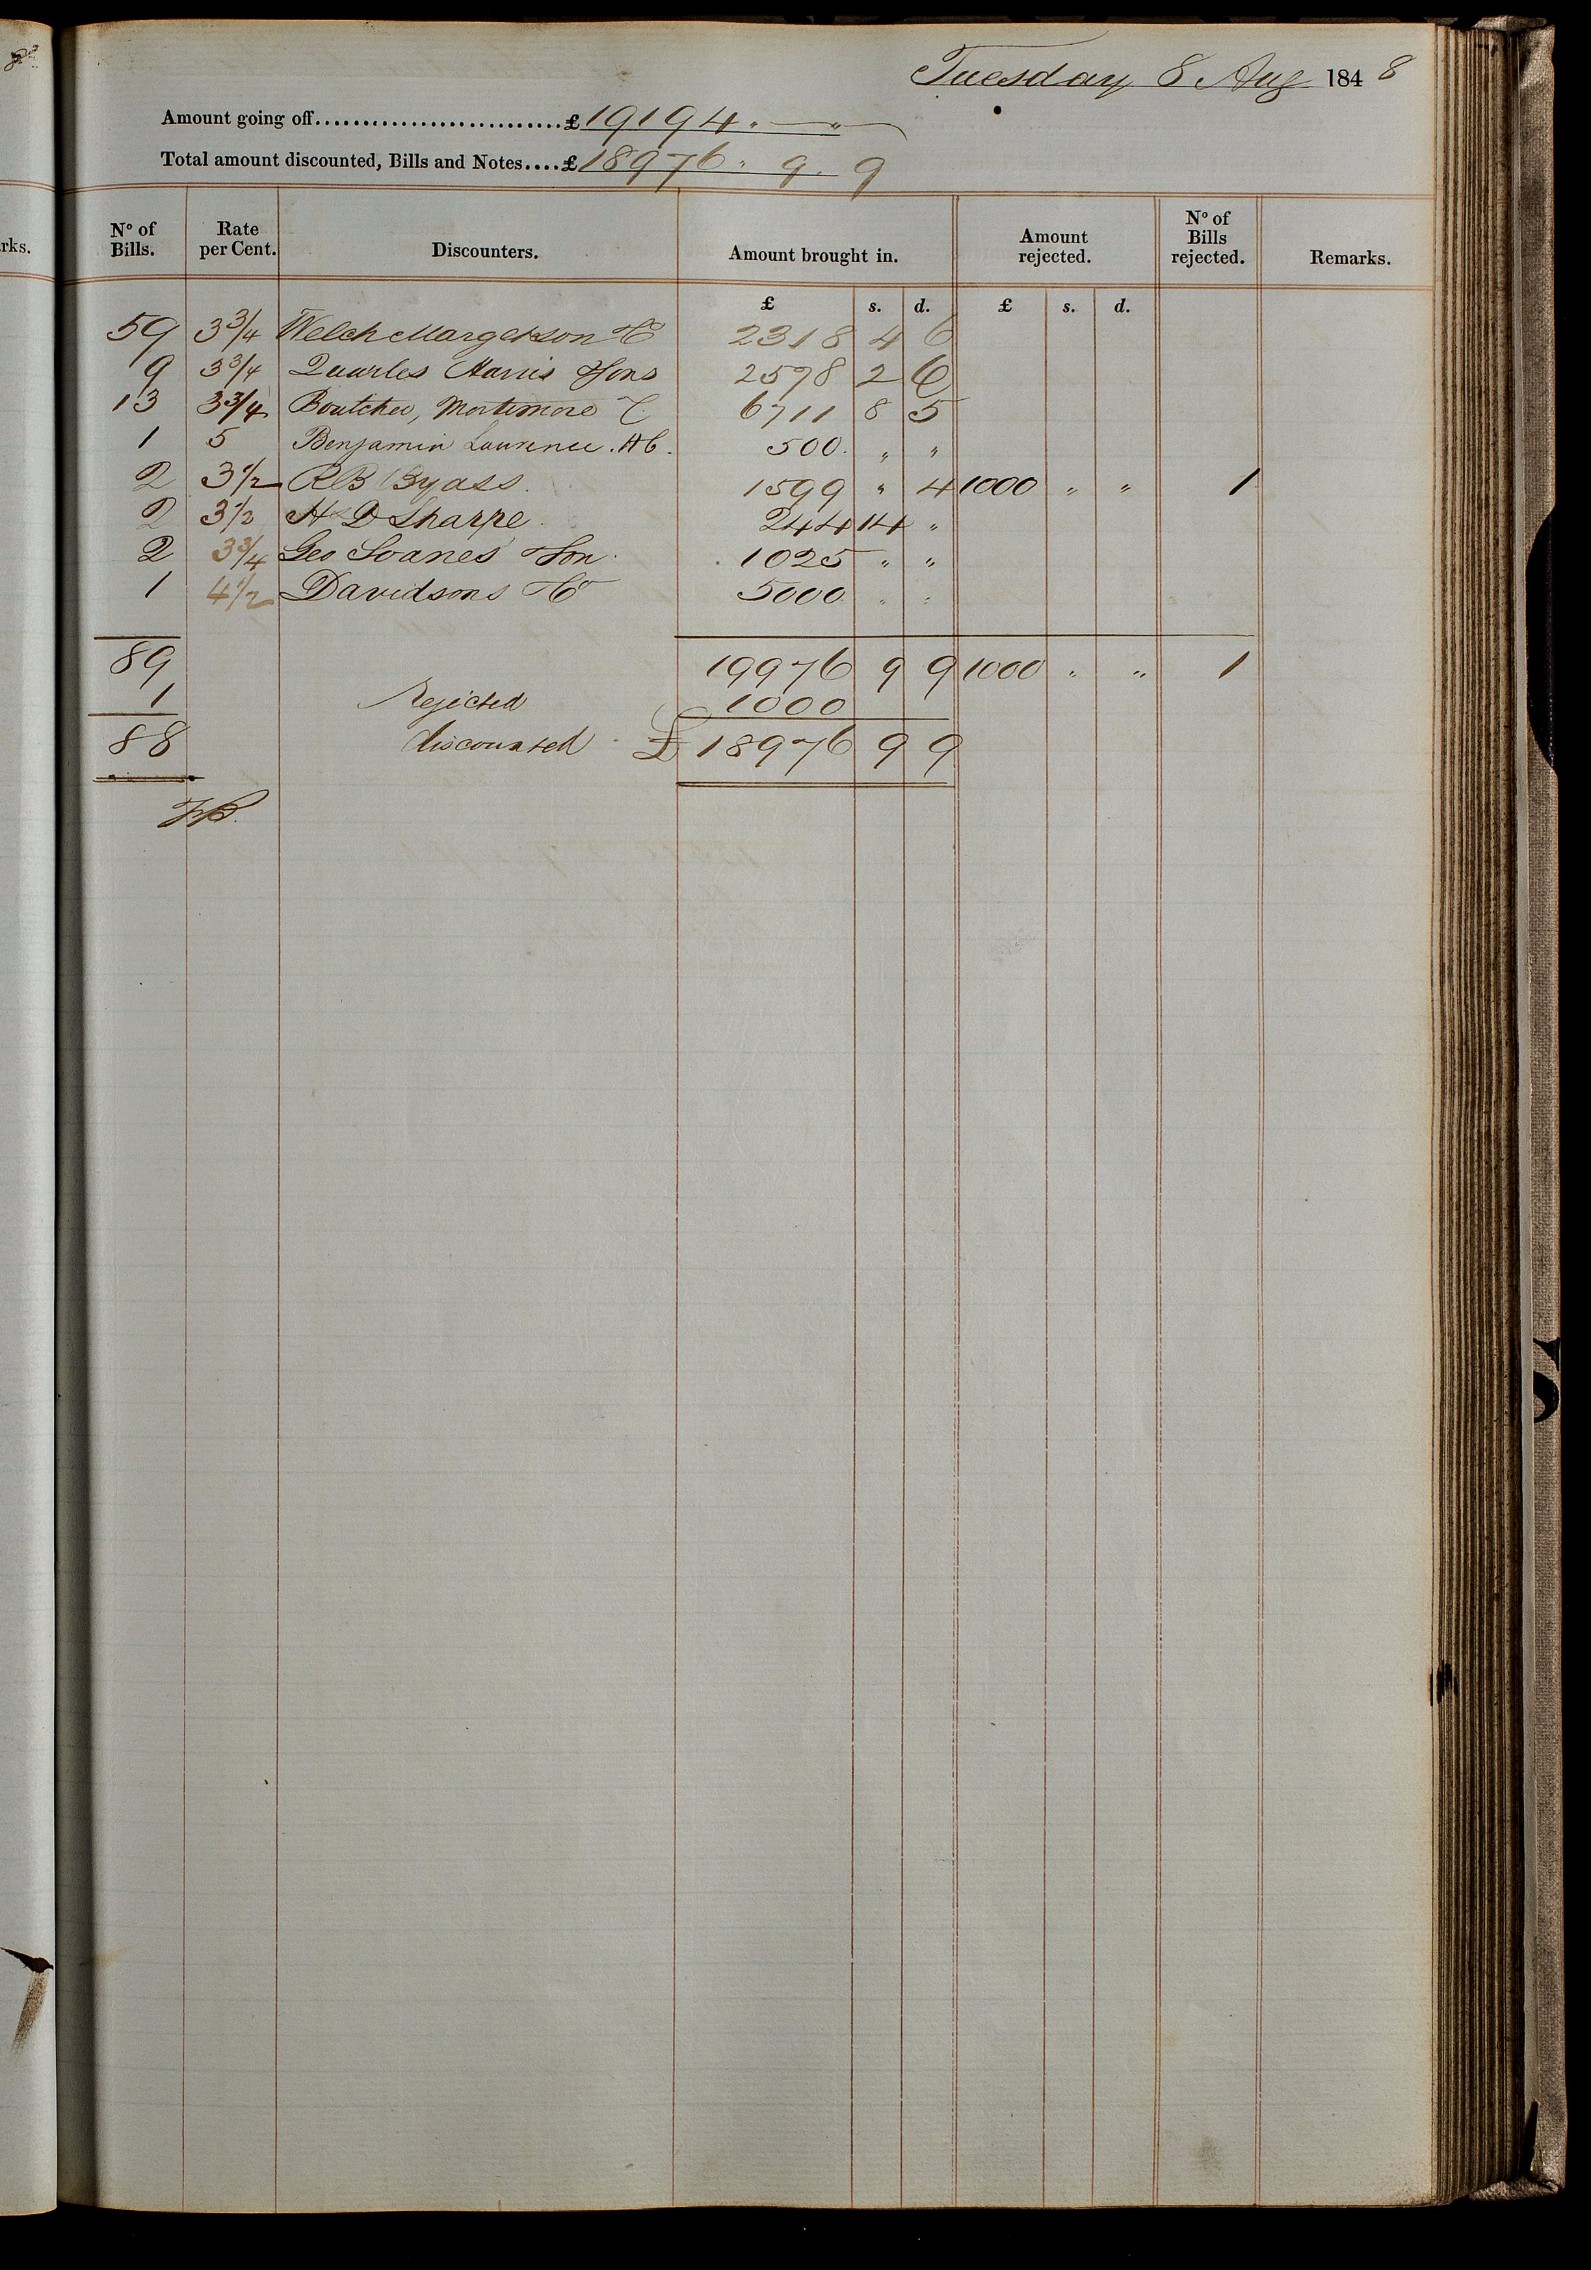 Tuesday 8 Aug 1848
Amount going off..........................£19194 " — "
Total amount discounted, Bills and Notes....£18976 " 9 . 9
rks. Nº of Bills. Rate per Cent. Discounters. Amount brought in. Amount rejected. Nº of Bills rejected. Remarks.
£ s. d. £ s. d.
59 3 3/4 Welch Margetson & Co 2318 4 6
9 3 3/4 Quarles Harris & Sons 2578 2 6
13 3 3/4 Boutcher, Mortimore & C 6711 8 5
1 5 Benjamin Laurence . 500 . " "
2 3 1/2 R B Byass . 1599 " 4 1000 " " 1
2 3 1/2 H D Sharpe . 244 14 "
2 3 3/4 Geo Soanes & Son . 1025 " "
1 4 1/2 Davidsons & Co 5000 " "
89 19976 9 9 1000 " " 1
1 Rejected 1000
88 discounted £ 18976 9 9